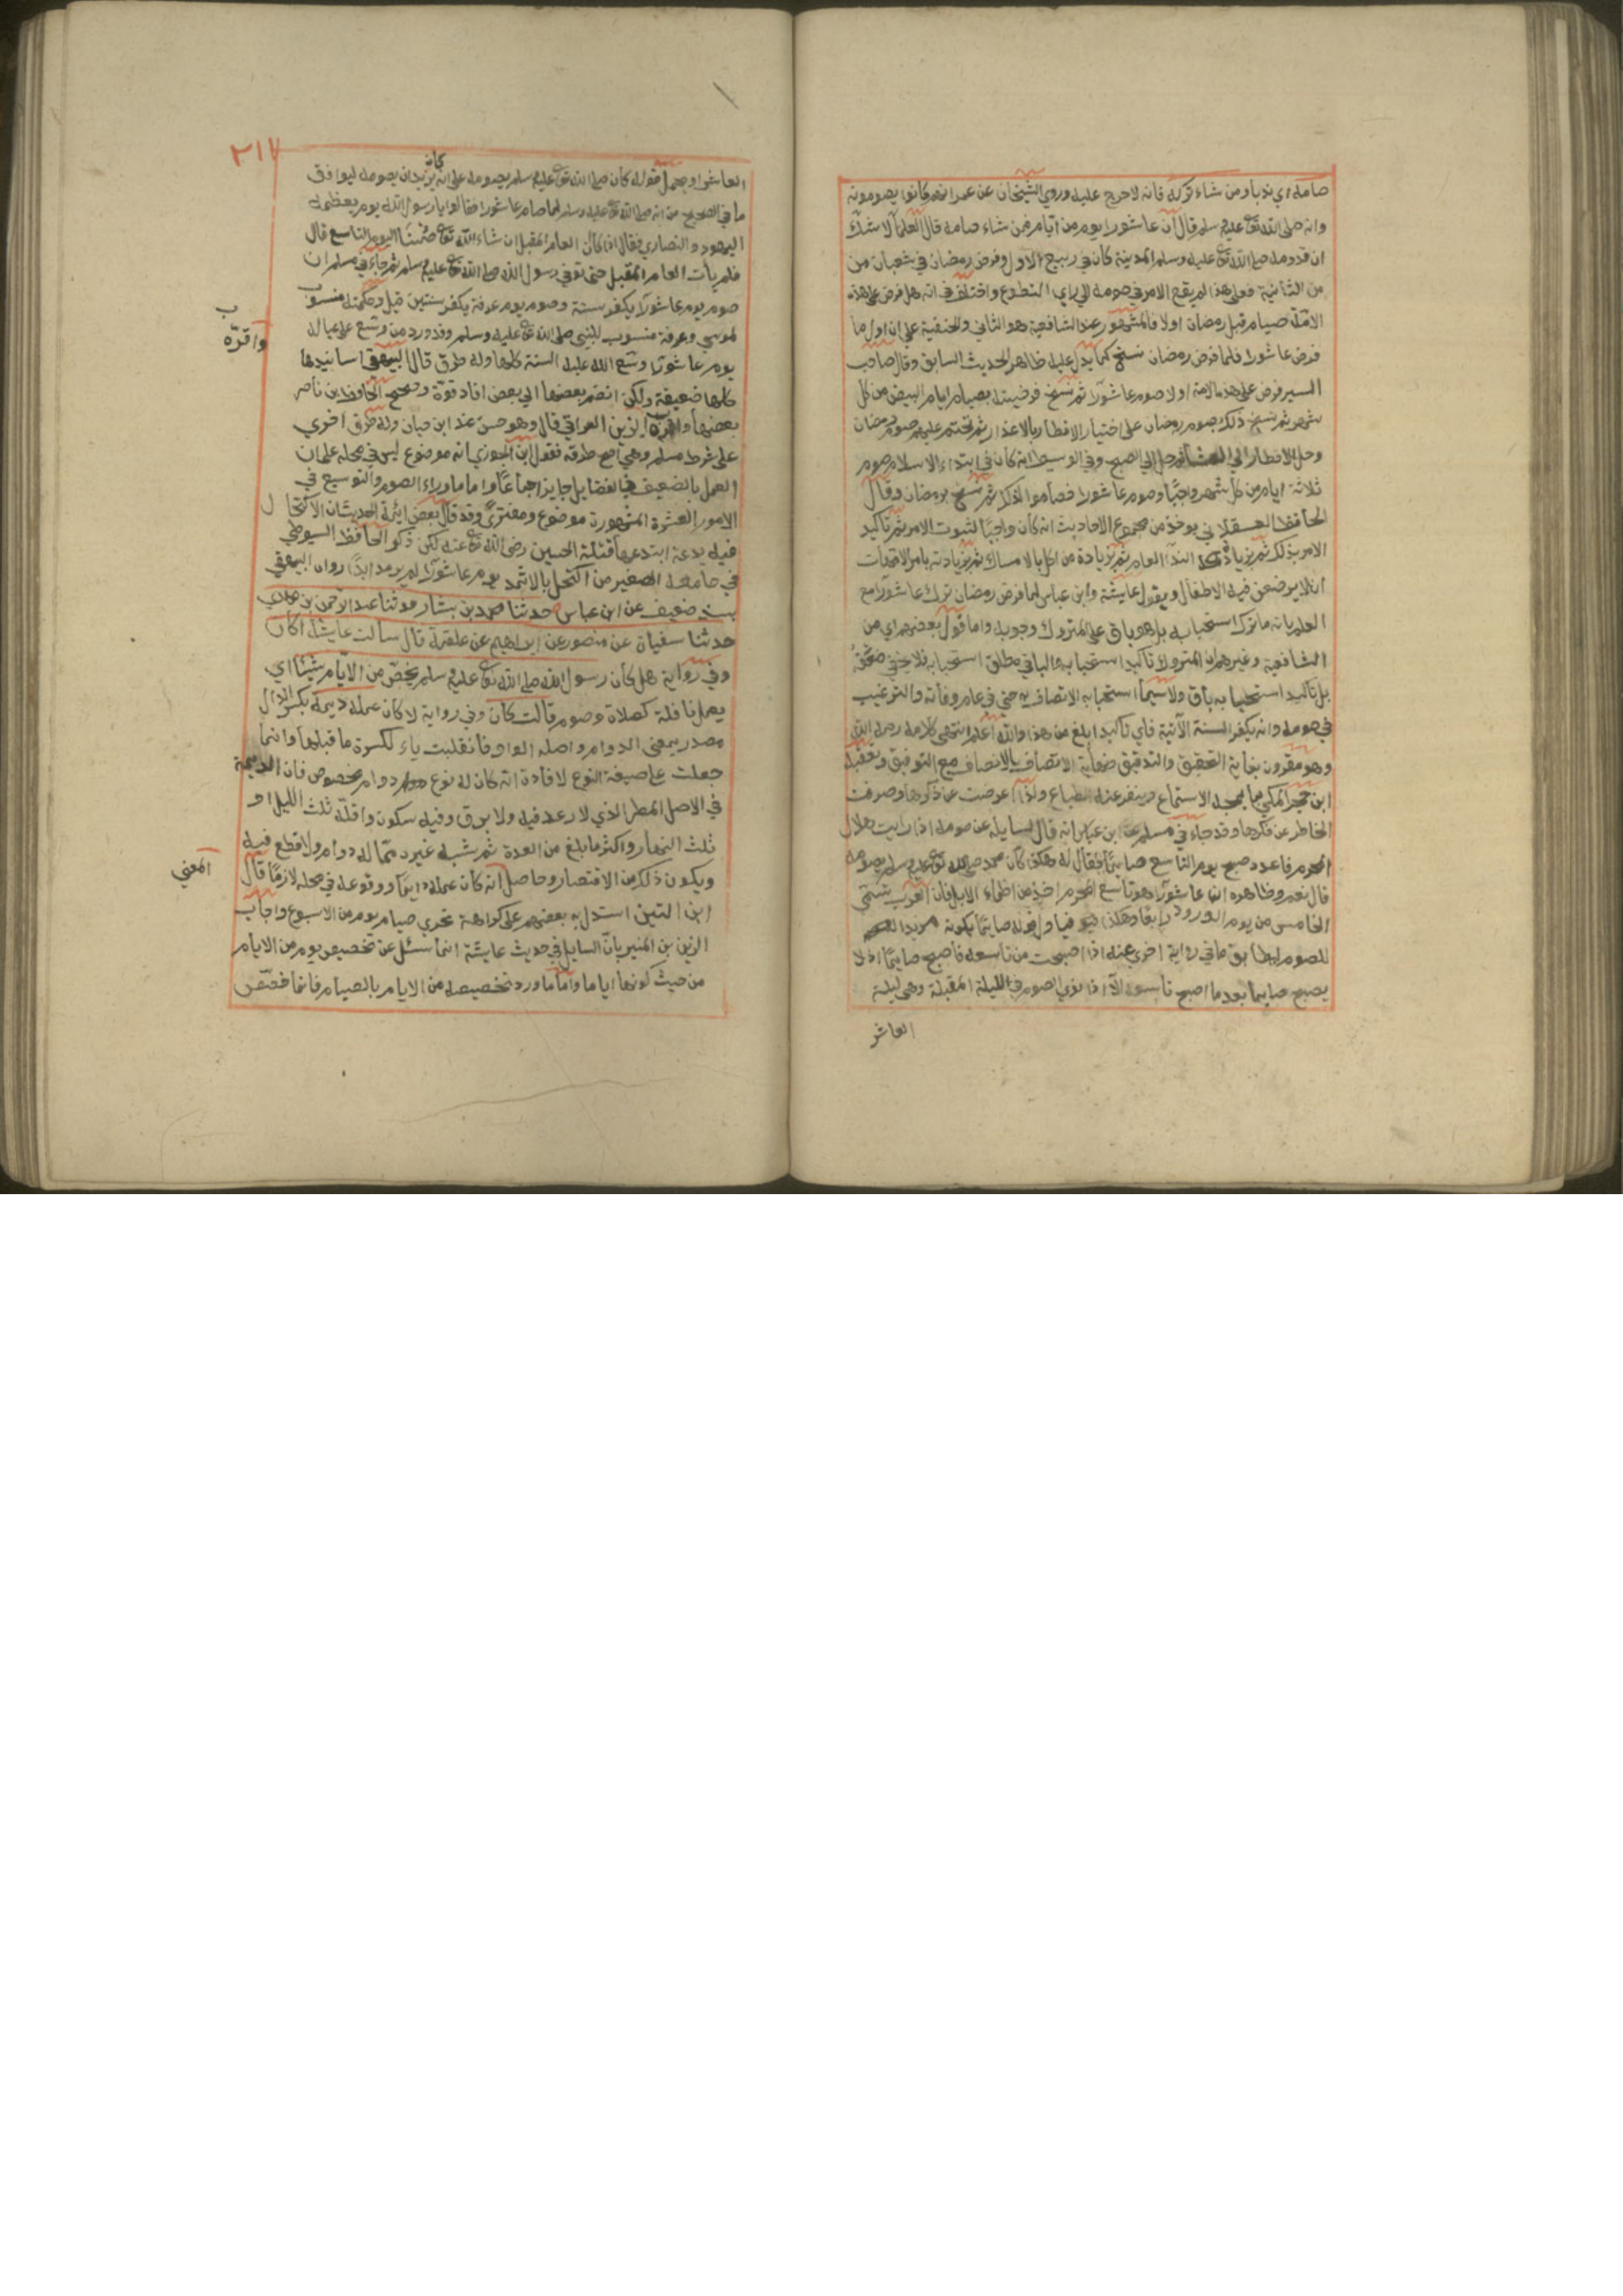 صامه اي ندبا ومن شاء تركه فانه لا حرج عليه وروي الشيخان عن عمر انهم كانوا يصومونه
وانه صلى الله تع عليه وسلم قال ان عاشورا يوم من ايام فمن شاء صامه قال العلما لا شك
ان قدومه صلى الله تع عليه وسلم المدينة كان في ربيع الاول وفرض رمضان في شعبان من
من الثانية فعلى هذا لم يقع الامر في صومه الي راي التطوع واختلف في انه هل فرض على هذه
الامة صيام قبل رمضان اولا فالمشهور عند الشافعية هو الثاني والحنفية على ان اول ما
فرض عاشورا فلما فرض رمضان نسخ كما يدل عليه ظاهر الحديث السابق وقال صاحب
السير فرض على هذه الامة اولا صوم عاشورا ثم نسخ فرضيته بصيام ايام البيض من كل
شهر ثم نسخ ذلك بصوم رمضان على اختيار الافطار بالاعذار ثم تحتم عليهم صوم رمضان
وحل الافطار الي العشا ثم حل الي الصبح وفي الوسيط انه كان في ابتداء الاسلام صوم
ثلاثة ايام من كل شهر واجبا وصوم عاشورا فصاموا كذلك ثم نسخ برمضان وقال
الحافظ العسقلاني يوخذ من مجموع الاحاديث انه كان واجبا لثبوت الامر ثم تاكيد
الامر بذلك ثم بزيادة الندا العام ثم بزيادة من اكل بالامساك ثم بزيادته بامر الامهات
ان لا يرضعن فيه الاطفال ويقول عايشة وابن عباس لما فرض رمضان ترك عاشورا مع
العلم بانه ما ترك استحبابه بل هو باق على المتروك وجوبه واما قول بعضهم اي من
الشافعية وغيرهم ان المتروك تاكيد استحبابه والباقي مطلق استحبابه فلا يخفى ضعفه
بل تاكيد استحبابه باق ولا سيما استحبابه الاتصاف به حتى في عام وفاته والترغيب
في صومه وانه يكفر السنة الآتية فاي تاكيد ابلغ من هذا والله اعلم انتهى كلامه رحمه الله
وهو مقرون بغاية التحقيق والتدقيق ونهاية الاتصاف بالانصاف مع التوفيق وتعقبه
ابن حجر المكي بما يمجه الاستماع وينفر عنه الطباع ولذا اعرضت عن ذكرها وصرفت
الخاطر عن فكرها وقد جاء في مسلم عن ابن عباس انه قال لسايله عن صومه اذا رايت هلال
المحرم فاعدد واصبح يوم التاسع صايما فقال له هكذا كان محمد صلى الله تع عليه وسلم يصومه
قال نعم وظاهره ان عاشورا هو تاسع المحرم اخذ من اظماء الابل فان العرب تسمى
الخامس من يوم الورود رابعا وهكذا واول قوله صايما بكونه مريدا
للصوم ليطابق ما في رواية اخرى عنه اذا اصبحت من تاسعه فاصبح صايما اذ لا
يصبح صايما بعد ما اصبح تاسوعا الا اذا نوى الصوم في الليلة المقبلة وهي ليلة
العاشر
٢١٧
العاشر او يحمل قوله كان صلى الله تع عليه وسلم يصومه على انه كان يريد ان يصومه ليوافق
ما في الصحيح من انه صلى الله تع عليه وسلم لما صام عاشورا فقالوا يا رسول الله يوم يعظمه
اليهود والنصاري فقال اذا كان العام المقبل ان شاء الله تع صمنا اليوم التاسع قال
فلم يات العام المقبل حتى توفي رسول الله صلى الله تع عليه وسلم ثم جاء في مسلم ان
صوم يوم عاشورا يكفر سنة وصوم يوم عرفة يكفر سنتين قيل وحكمته منسوب
لموسى وعرفة منسوب للنبي صلى الله تع عليه وسلم وقد ورد من وسع على عياله
يوم عاشورا وسع الله عليه السنة كلها وله طرق قال البيهقي اسانيدها
كلها ضعيفة ولكن انضم بعضها الي بعض افاد قوة وصحح الحافظ ابن ناصر
بعضها واقره الزين العراقي قال وهو حسن عند ابن حبان وله طرق اخرى
واقره ب
على شرط مسلم وهي اصح طرقه فقول ابن الجوزي انه موضوع ليس في محله على ان
العمل بالضعيف في الفضايل جايز اجماعا واما ما وراء الصوم والتوسيع في
الامور العشرة المشهورة موضوع ومفترى وقد قال بعض ائمة الحديث ان الاكتحال
فيه بدعة ابتدعها قتلة الحسين رضى الله تع عنه لكن ذكر الحافظ السيوطي
في جامعه الصغير من اكتحل بالاثمد يوم عاشورا لم يرمد ابدا رواه البيهقي
بسند ضعيف عن ابن عباس حدثنا محمد بن بشار حدثنا عبد الرحمن بن مهدي
حدثنا سفيان عن منصور عن ابراهيم عن علقمة قال سالت عايشة اكان
وفي رواية هل كان رسول الله صلى الله تع عليه وسلم يخص من الايام شيئا اي
يعمل نافلة كصلاة وصوم قالت كان وفي رواية لا كان عمله ديمة بكسر الدال
مصدر بمعنى الدوام واصله الواو فانقلبت ياء لكسرة ما قبلها وانما
جعلت على صيغة النوع لافادة انه كان له نوع دوام مخصوص فان الديمة
في الاصل المطر الذي لا رعد فيه ولا برق وفيه سكون واقله ثلث الليل او
ثلث النهار واكثر ما بلغ من العدة ثم شبه غيره مما له دوام ولا قطع فيه
ويكون ذلك من الاقتصار وحاصل انه كان عمله دايما ووقوعه في محله لازما قال
المعني
ابن التين استدل به بعضهم على كراهة تحري صيام يوم من الاسبوع واجاب
الزين بن المنير بان السايل في حديث عايشة انما سئل عن تخصيص يوم من الايام
من حيث كونها اياما واما ما ورد تخصيصه من الايام بالصيام فانما خصص